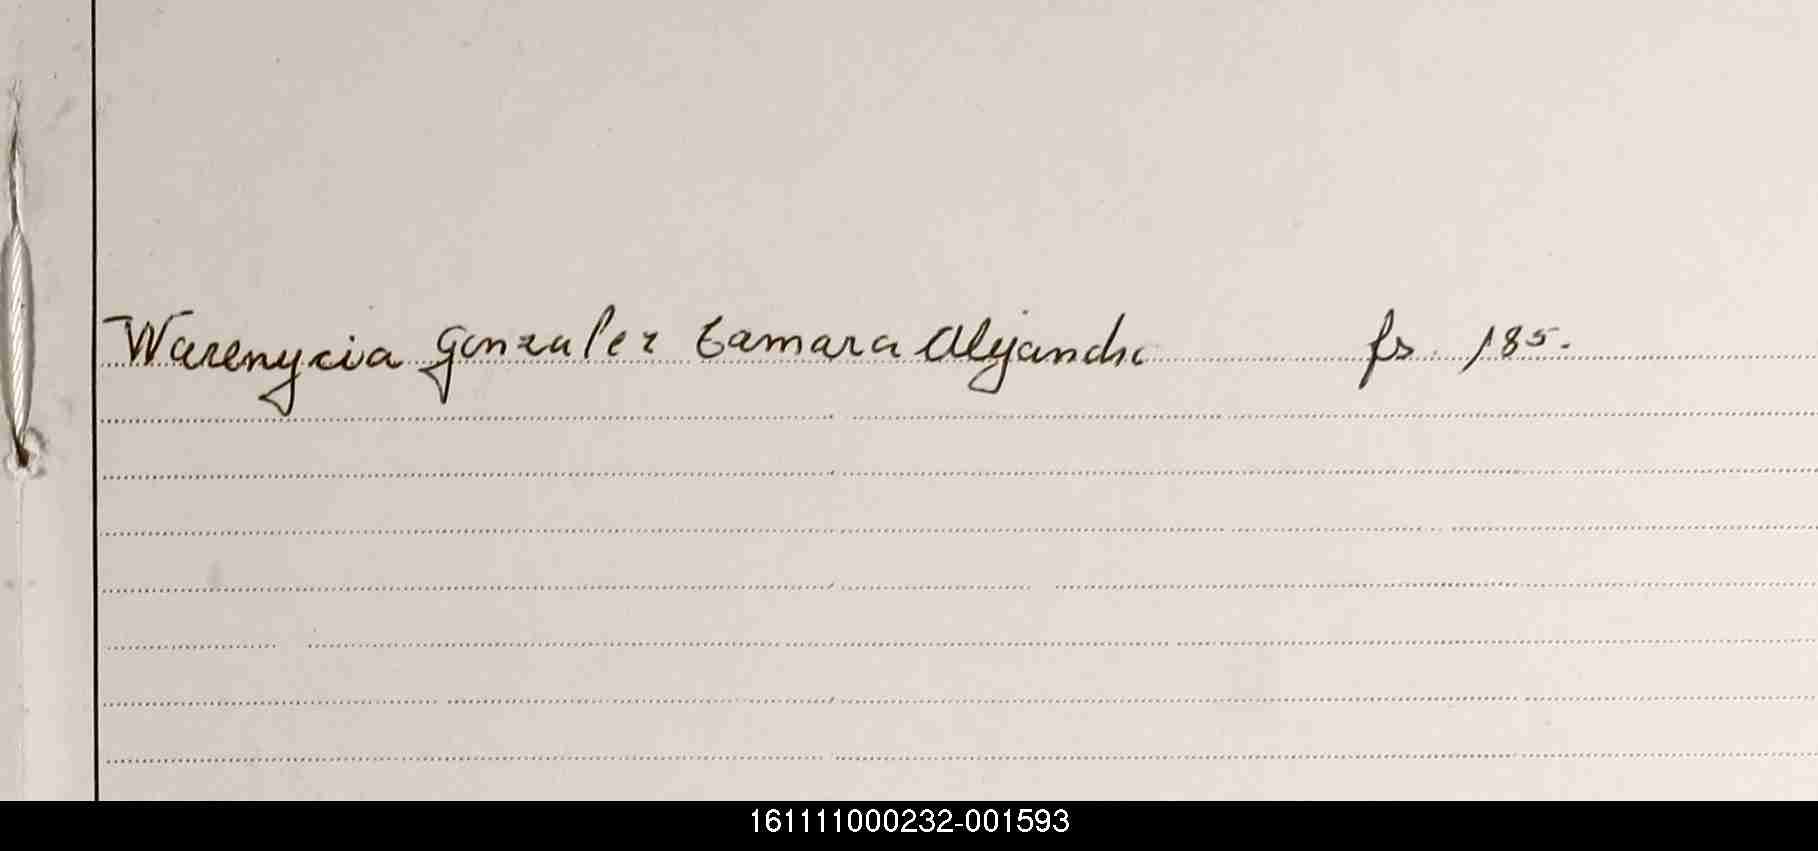 Warenycia Gonzalez Tamara Alejandra fs 185.
161111000232-001593